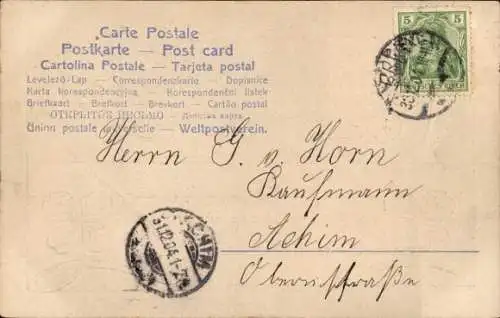 Carte Postale
Postkarte — Post card
Cartolina Postale — Tarjeta postal
Levelező-Lap — Correspondenzkarte — Dopisnice
Karta korespondencyjna — Korespondenční lístek
Briefkaart — Brefkort — Brevkort — Cartão postal
ОТКРЫТОЕ ПИСЬМО —
Union postale universelle — Weltpostverein.
5 5
ACHIM
31.12.04.1-2
Herrn G. v. Horn
Kaufmann
Achim
Obernstraße